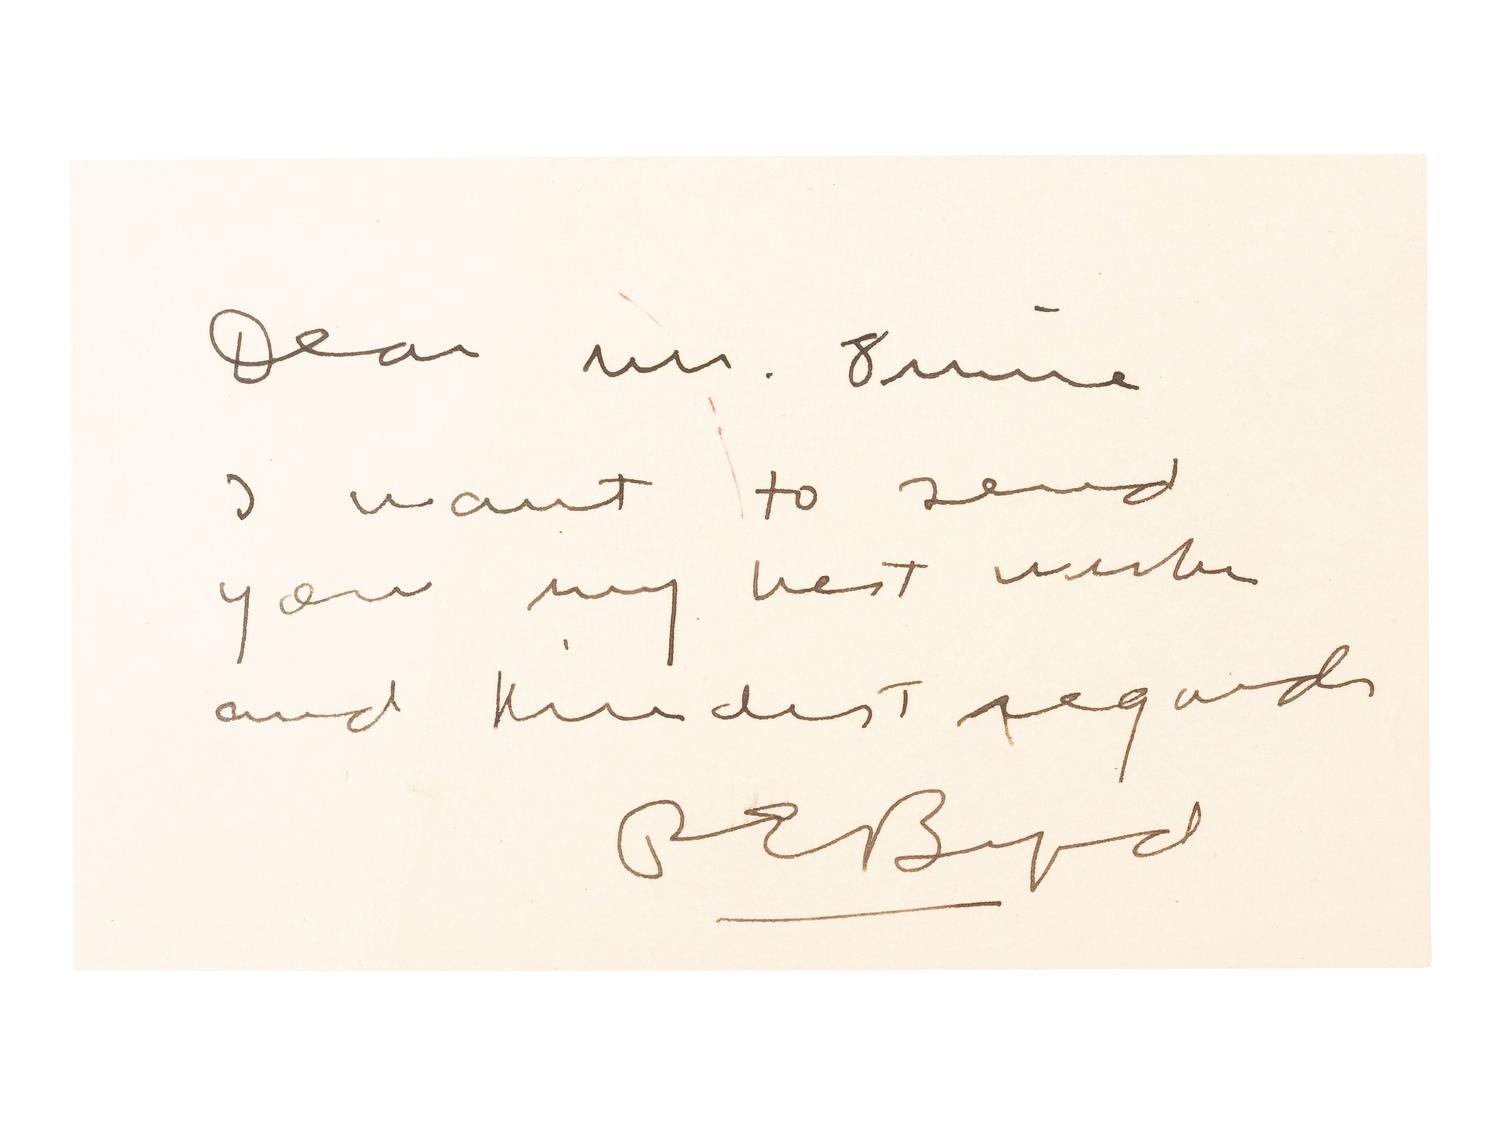 Dear Mr.
I want to send
you my best wishes
and kindest regards
R E Byrd